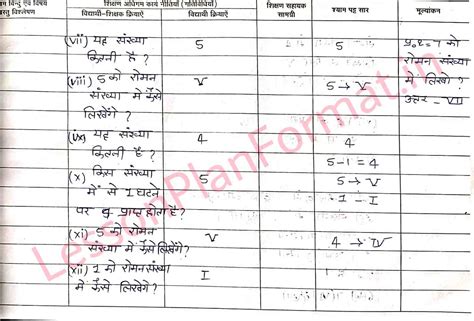 शिक्षण बिन्दु एवं विषय वस्तु विश्लेषण
शिक्षण अधिगम कार्य नीतियाँ (गतिविधियाँ)
विद्यार्थी–शिक्षक क्रियाएँ
विद्यार्थी क्रियाएँ
शिक्षण सहायक सामग्री
श्याम पट्ट सार
मूल्यांकन
(vii) यह संख्या 5 5 प्र०२= 7 को
कितनी है ? रोमन संख्या
(viii) 5 को रोमन V 5 → V में लिखो ?
संख्या में कैसे उत्तर - VII
लिखेंगे ?
(ix) यह संख्या 4 4
कितनी है ? 5-1 = 4
(x) किस संख्या 5 5 → V
में से 1 घटने 1 - I
पर 4 प्राप्त होता है ?
(xi) 5 को रोमन V 4 → IV
संख्या में कैसे लिखेंगे ?
(xii) 1 को रोमन संख्या I
में कैसे लिखेंगे ?
LessonPlanFormat.in